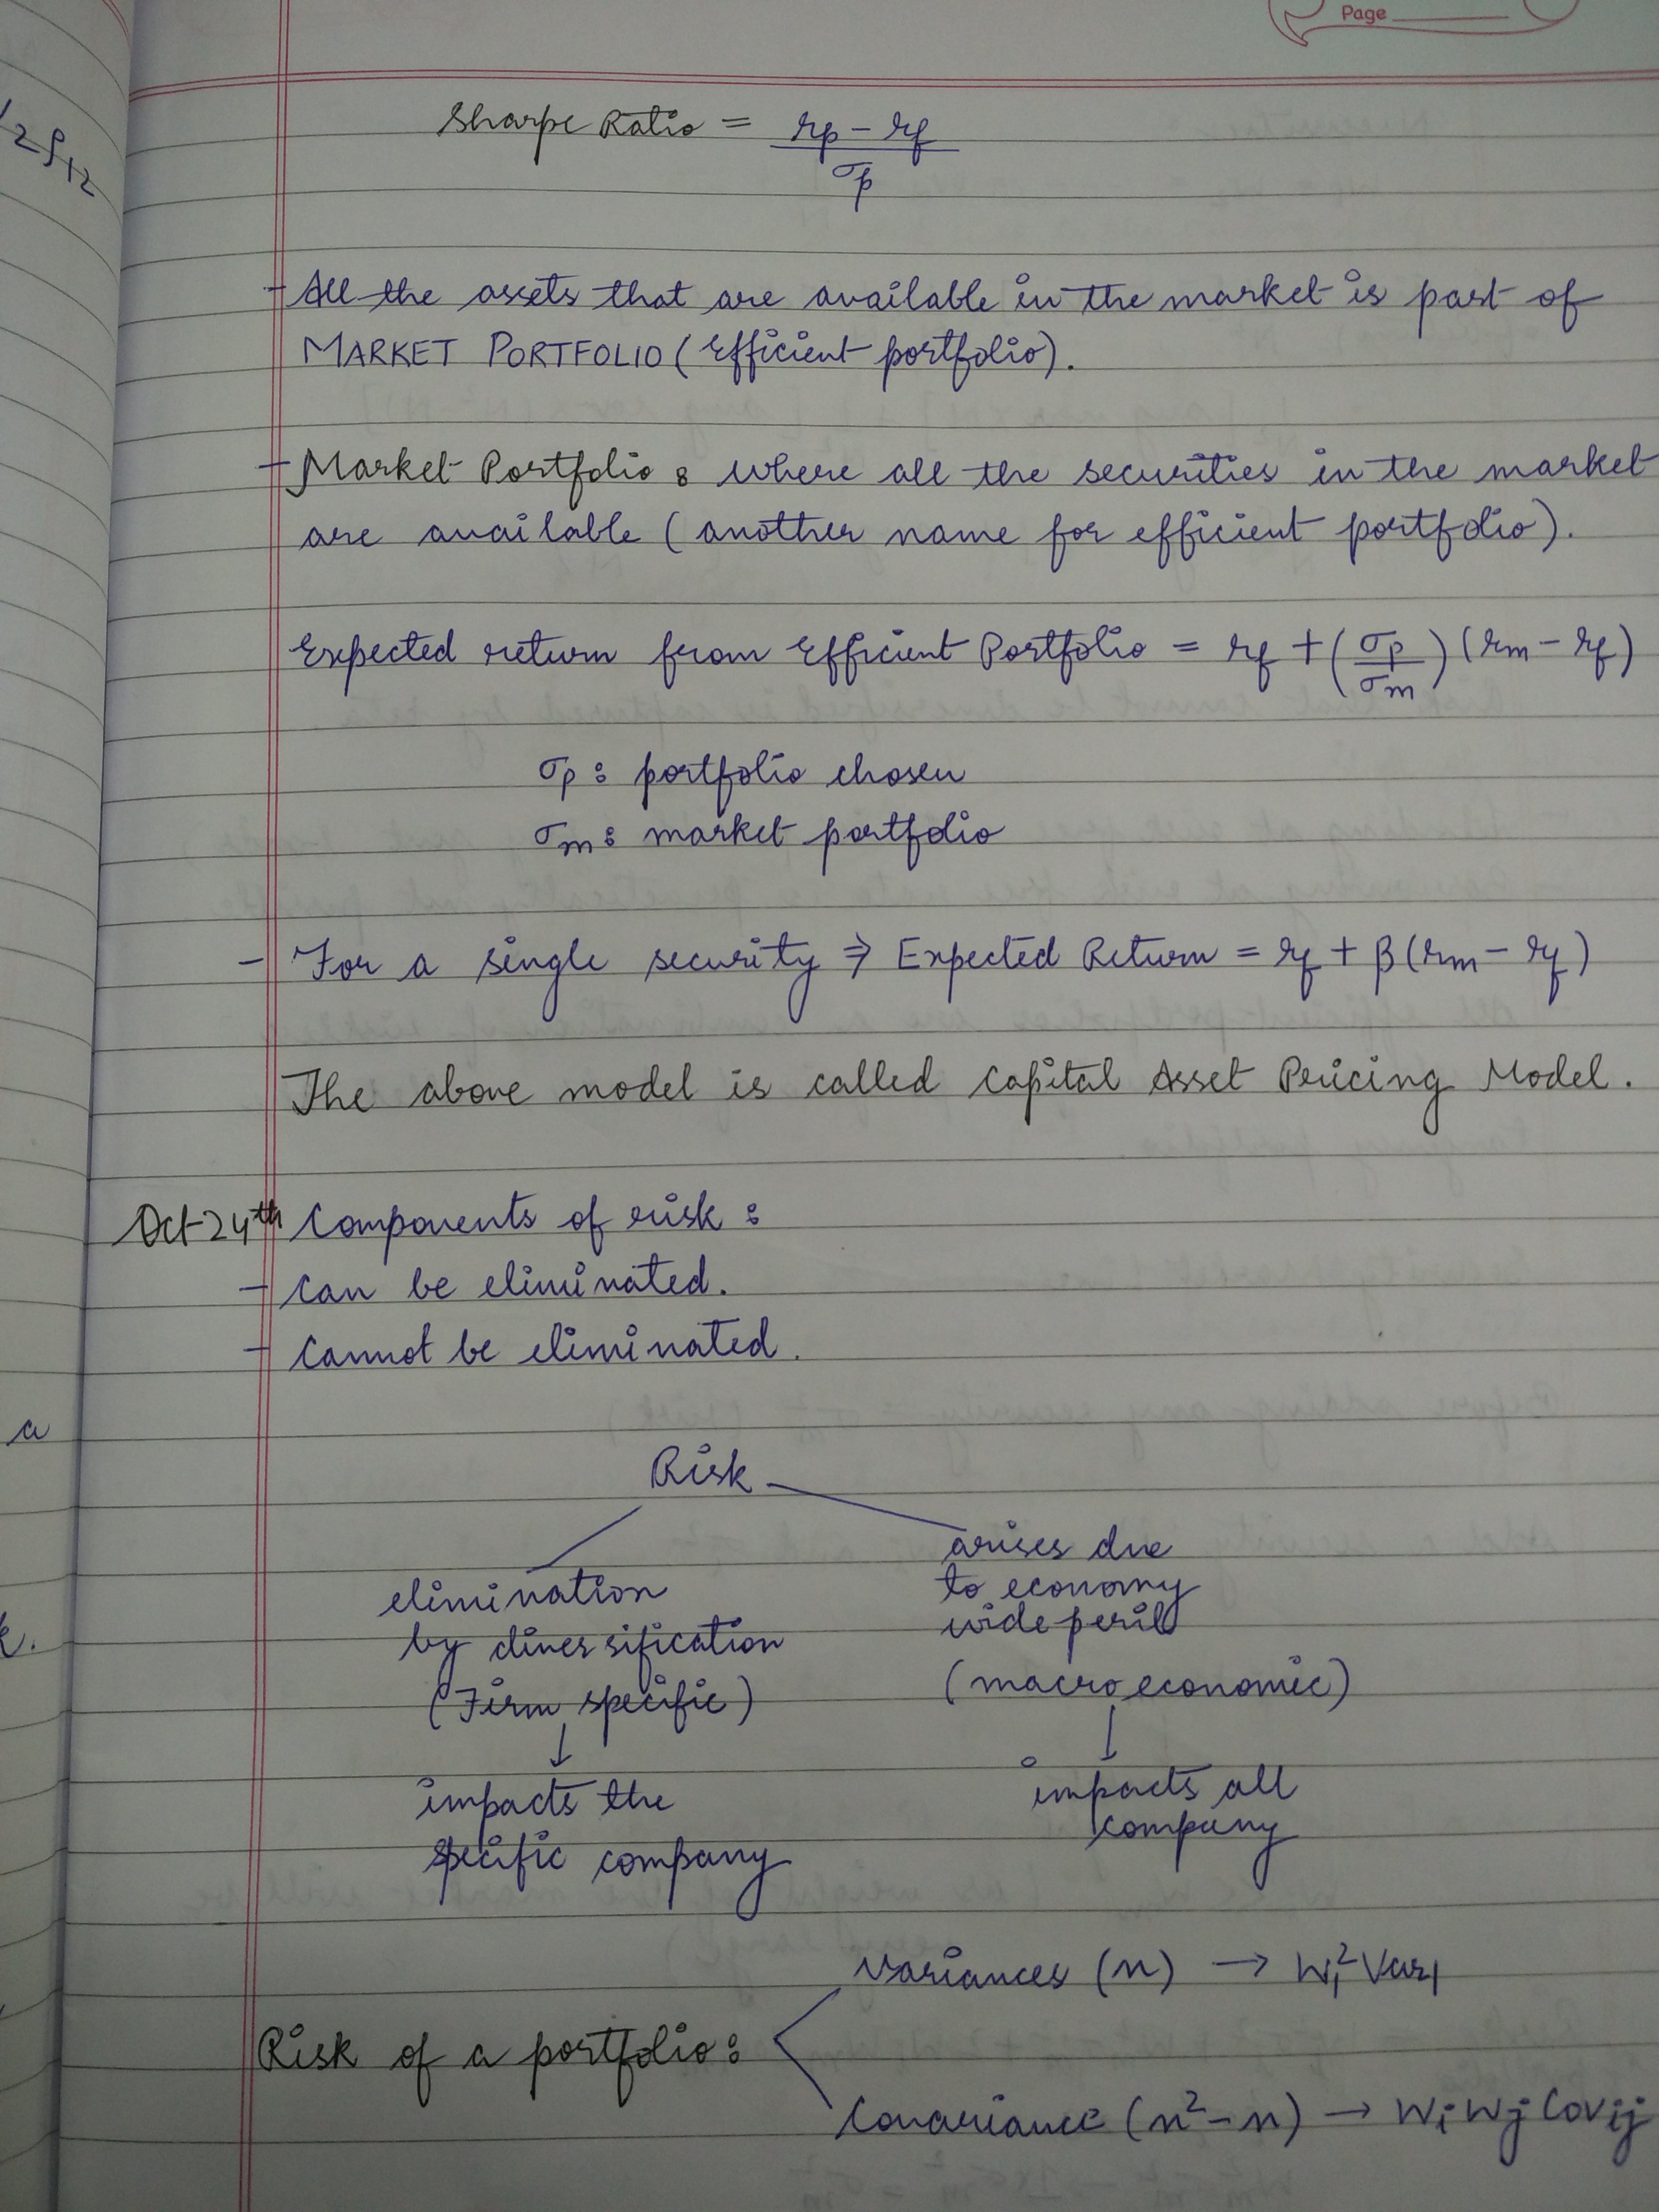 Page
Sharpe Ratio = (rp - rf) / σp
- All the assets that are available in the market is part of
MARKET PORTFOLIO (Efficient portfolio).
- Market Portfolio : where all the securities in the market
are available (another name for efficient portfolio).
Expected return from Efficient Portfolio = rf + (σp/σm) (rm - rf)
σp : portfolio chosen
σm : market portfolio
- For a single security ⇒ Expected Return = rf + β (rm - rf)
The above model is called Capital Asset Pricing Model.
Oct 24th Components of risk :
- can be eliminated.
- cannot be eliminated.
Risk
elimination
by diversification
(Firm specific)
↓
impacts the
specific company
arises due
to economy
wide peril
(macroeconomic)
↓
impacts all
company
Risk of a portfolio :
Variances (n) → Wi² Var1
Covariance (n² - n) → Wi Wj Cov ij